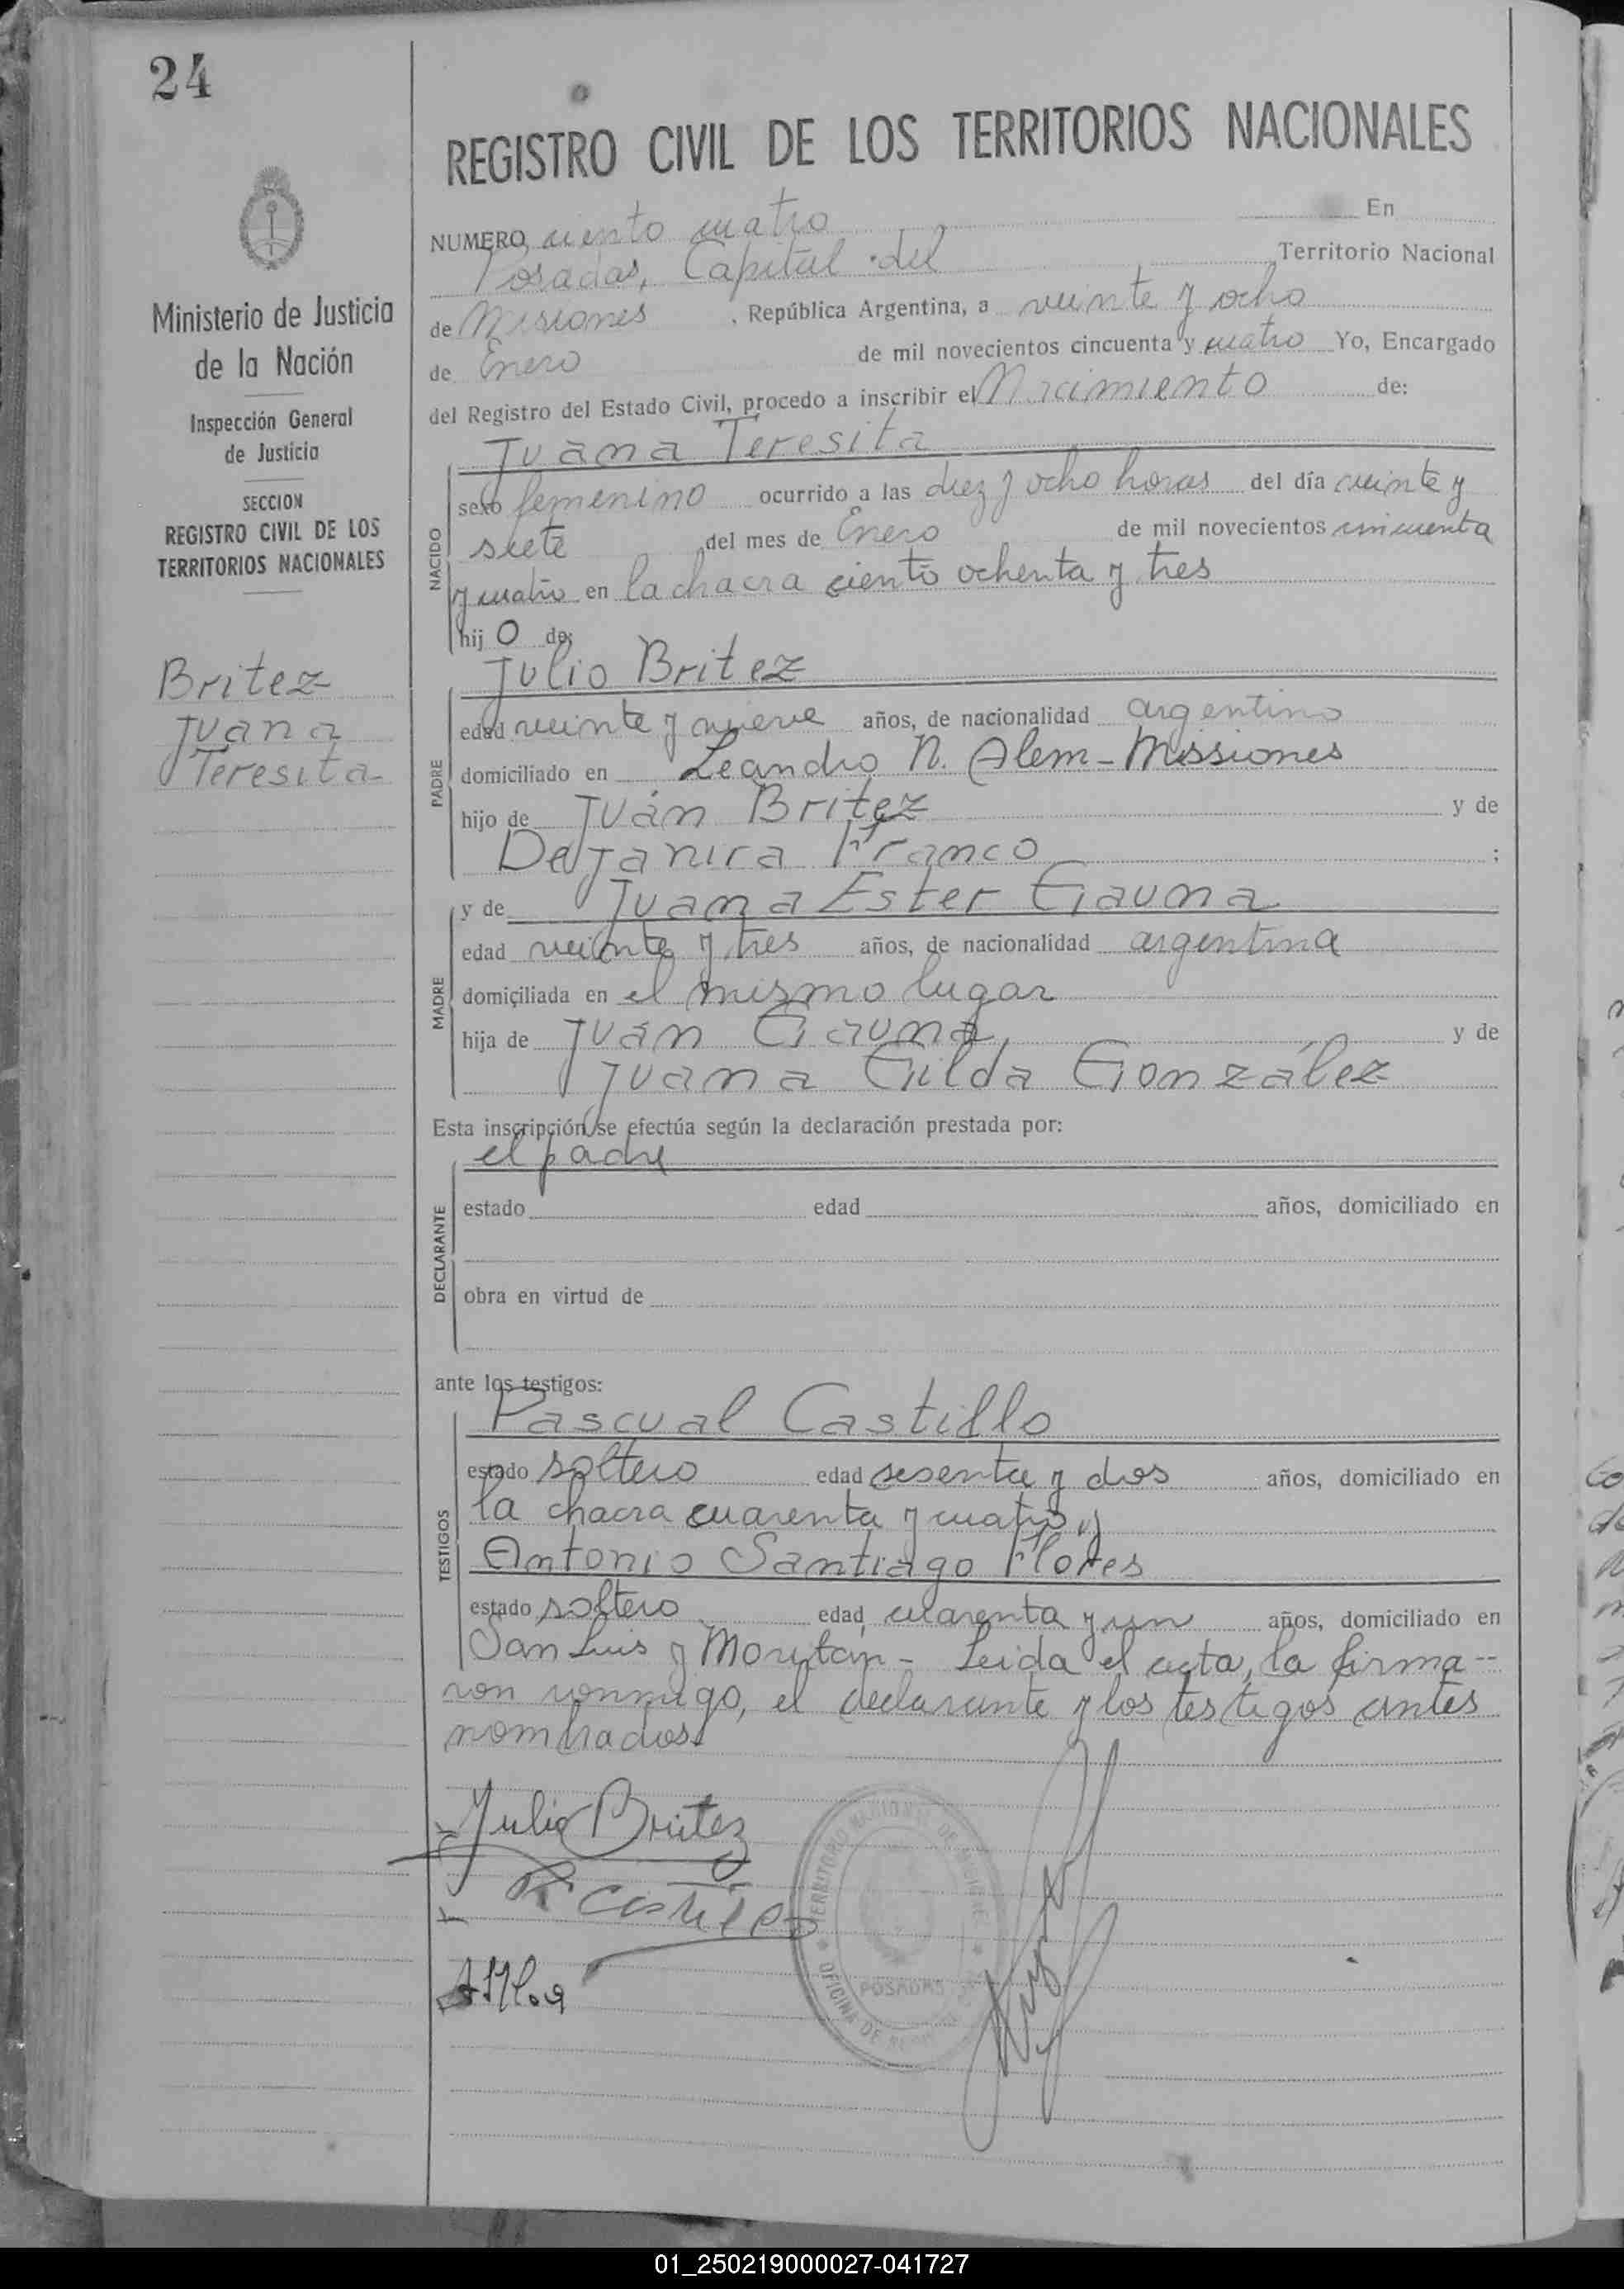 24
REGISTRO CIVIL DE LOS TERRITORIOS NACIONALES
Ministerio de Justicia
de la Nación
Inspección General
de Justicia
SECCION
REGISTRO CIVIL DE LOS
TERRITORIOS NACIONALES
Britez
Juana
Teresita
NUMERO ciento cuatro En
Posadas, Capital del Territorio Nacional
de Misiones, República Argentina, a veinte y ocho
de Enero de mil novecientos cincuenta y cuatro Yo, Encargado
del Registro del Estado Civil, procedo a inscribir el Nacimiento de:
Juana Teresita
NACIDO
sexo femenino ocurrido a las diez y ocho horas del día veinte y
siete del mes de Enero de mil novecientos cincuenta
y cuatro en la chacra ciento ochenta y tres
hij O de:
Julio Britez
PADRE
edad veinte y nueve años, de nacionalidad argentino
domiciliado en Leandro N. Alem - Missiones
hijo de Juán Britez y de
Dejanira Franco ;
y de Juana Ester Gauna
MADRE
edad veinte y tres años, de nacionalidad argentina
domiciliada en el mismo lugar
hija de Juán Gauna y de
Juana Gilda González
Esta inscripción se efectúa según la declaración prestada por:
el padre
DECLARANTE
estado edad años, domiciliado en
obra en virtud de
ante los testigos:
Pascual Castillo
TESTIGOS
estado soltero edad sesenta y dos años, domiciliado en
la chacra cuarenta y cuatro y
Antonio Santiago Flores
estado soltero edad cuarenta y un años, domiciliado en
San Luis y Moritán - Leida el acta, la firma--
ron conmigo, el declarante y los testigos antes
nombrados.
Julio Britez
P. Castillo
TERRITORIO NACIONAL DE MISIONES
OFICINA DE
POSADAS
01_250219000027-041727